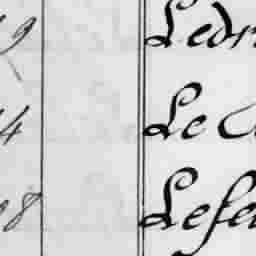 9 Ledr
4 Le C
8 Lefe